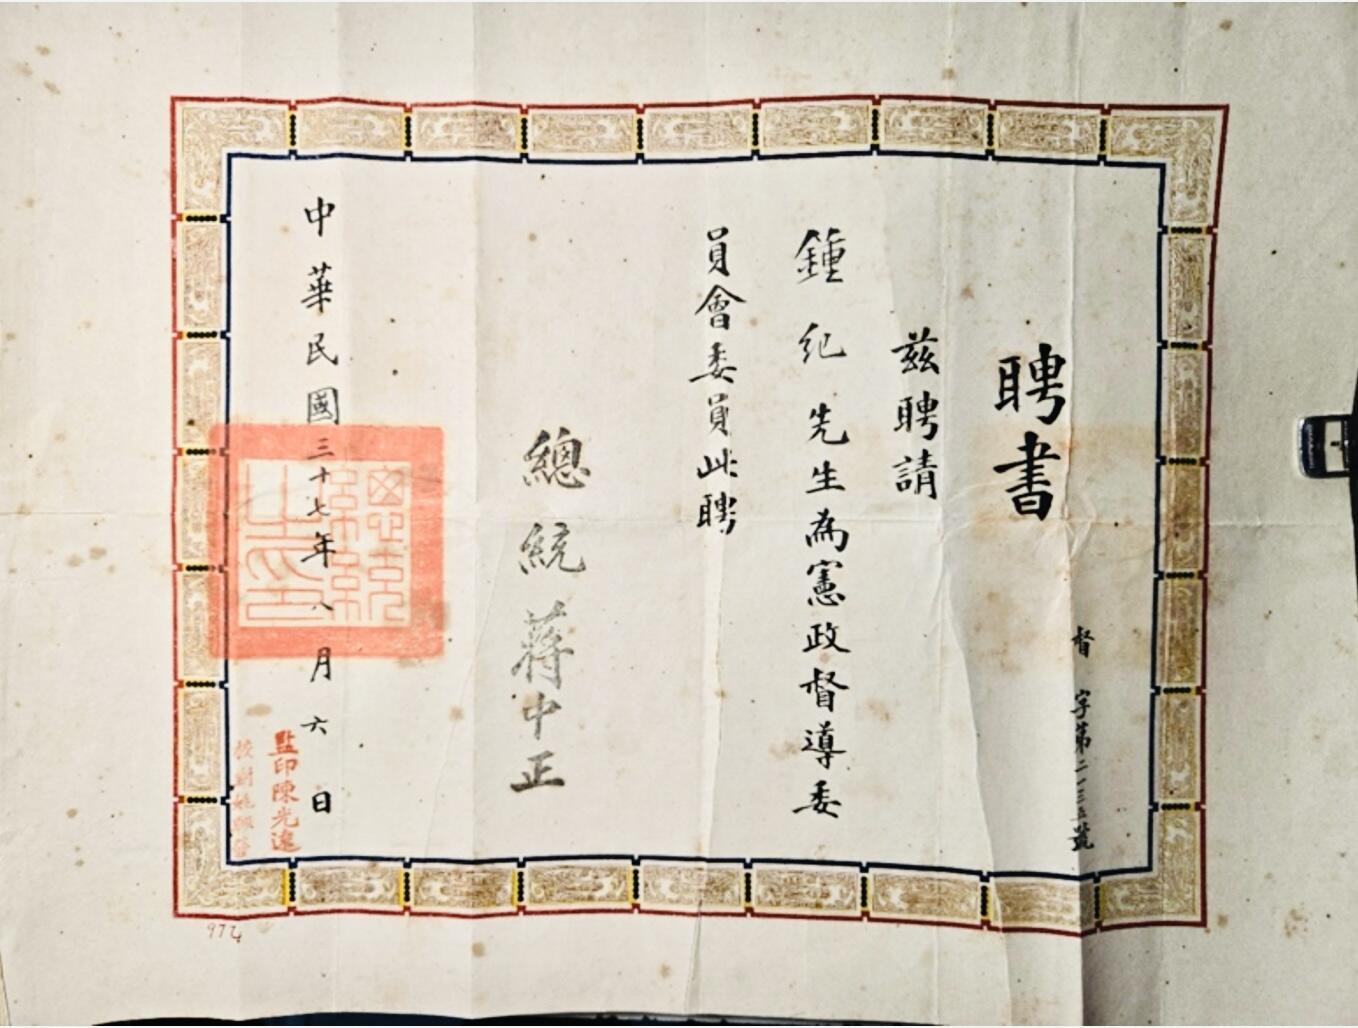 聘書
督字第二一三五號
茲聘請
鍾紀先生為憲政督導委
員會委員此聘
總統蔣中正
中華民國三十七年八月六日
總統之印
監印陳光遠
974